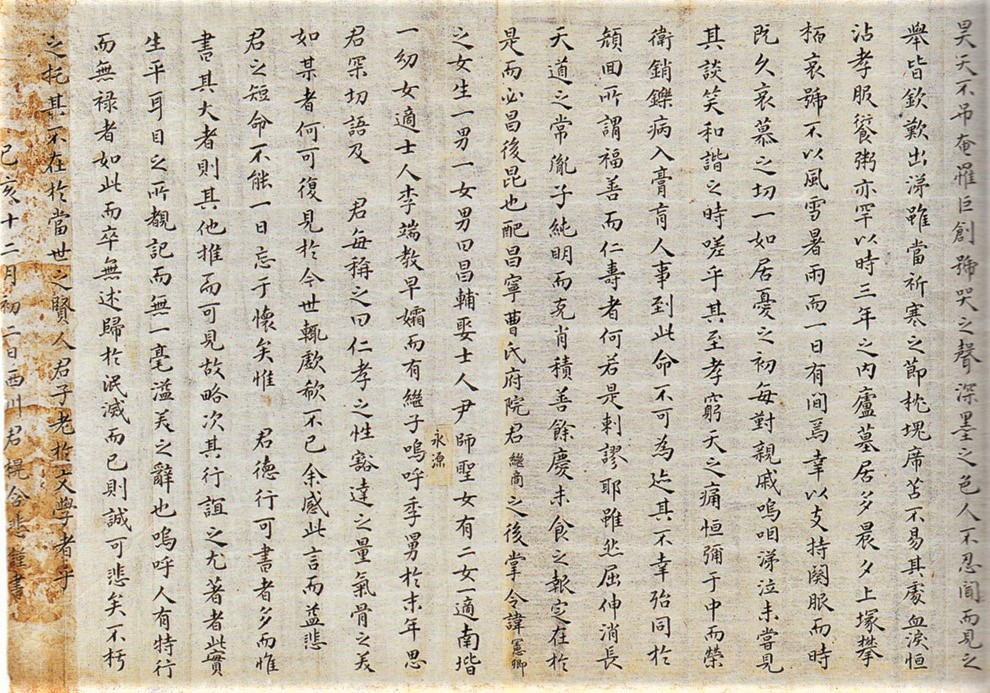 昊天不吊奄罹巨創號哭之聲深墨之色人不忍聞而見之
舉皆欽歎出涕雖當祈寒之節枕塊席苫不易其處血淚恒
沾孝服饘粥亦罕以時三年之內廬墓居多晨夕上塚攀
栢哀號不以風雪暑雨而一日有間焉幸以支持闋服而時
旣久哀慕之切一如居憂之初每對親戚嗚咽涕泣未嘗見
其談笑和諧之時嗟乎其至孝窮天之痛恒彌于中而榮
衛銷鑠病入膏肓人事到此命不可為迃其不幸殆同於
顔回所謂福善而仁壽者何若是剌謬耶雖然屈伸消長
天道之常胤子純明而克肖積善餘慶未食之報定在於
是而必昌後昆也配昌寧曹氏府院君繼商之後掌令諱憲卿
之女生一男一女男曰昌輔娶士人尹師聖女有二女一適南堦
永源
一幼女適士人李端教早孀而有繼子嗚呼季舅於末年思
君罙切語及 君每稱之曰仁孝之性豁達之量氣骨之美
如某者何可復見於今世輒歔欷不已余感此言而益悲
君之短命不能一日忘于懷矣惟 君德行可書者多而惟
書其大者則其他推而可見故略次其行誼之尤著者此實
生平耳目之所覩記而無一毫溢美之辭也嗚呼人有特行
而無祿者如此而卒無述歸於泯滅而已則誠可悲矣不朽
之托其不在於當世之賢人君子老於文學者乎
己亥十二月初二日西川君 含悲謹書